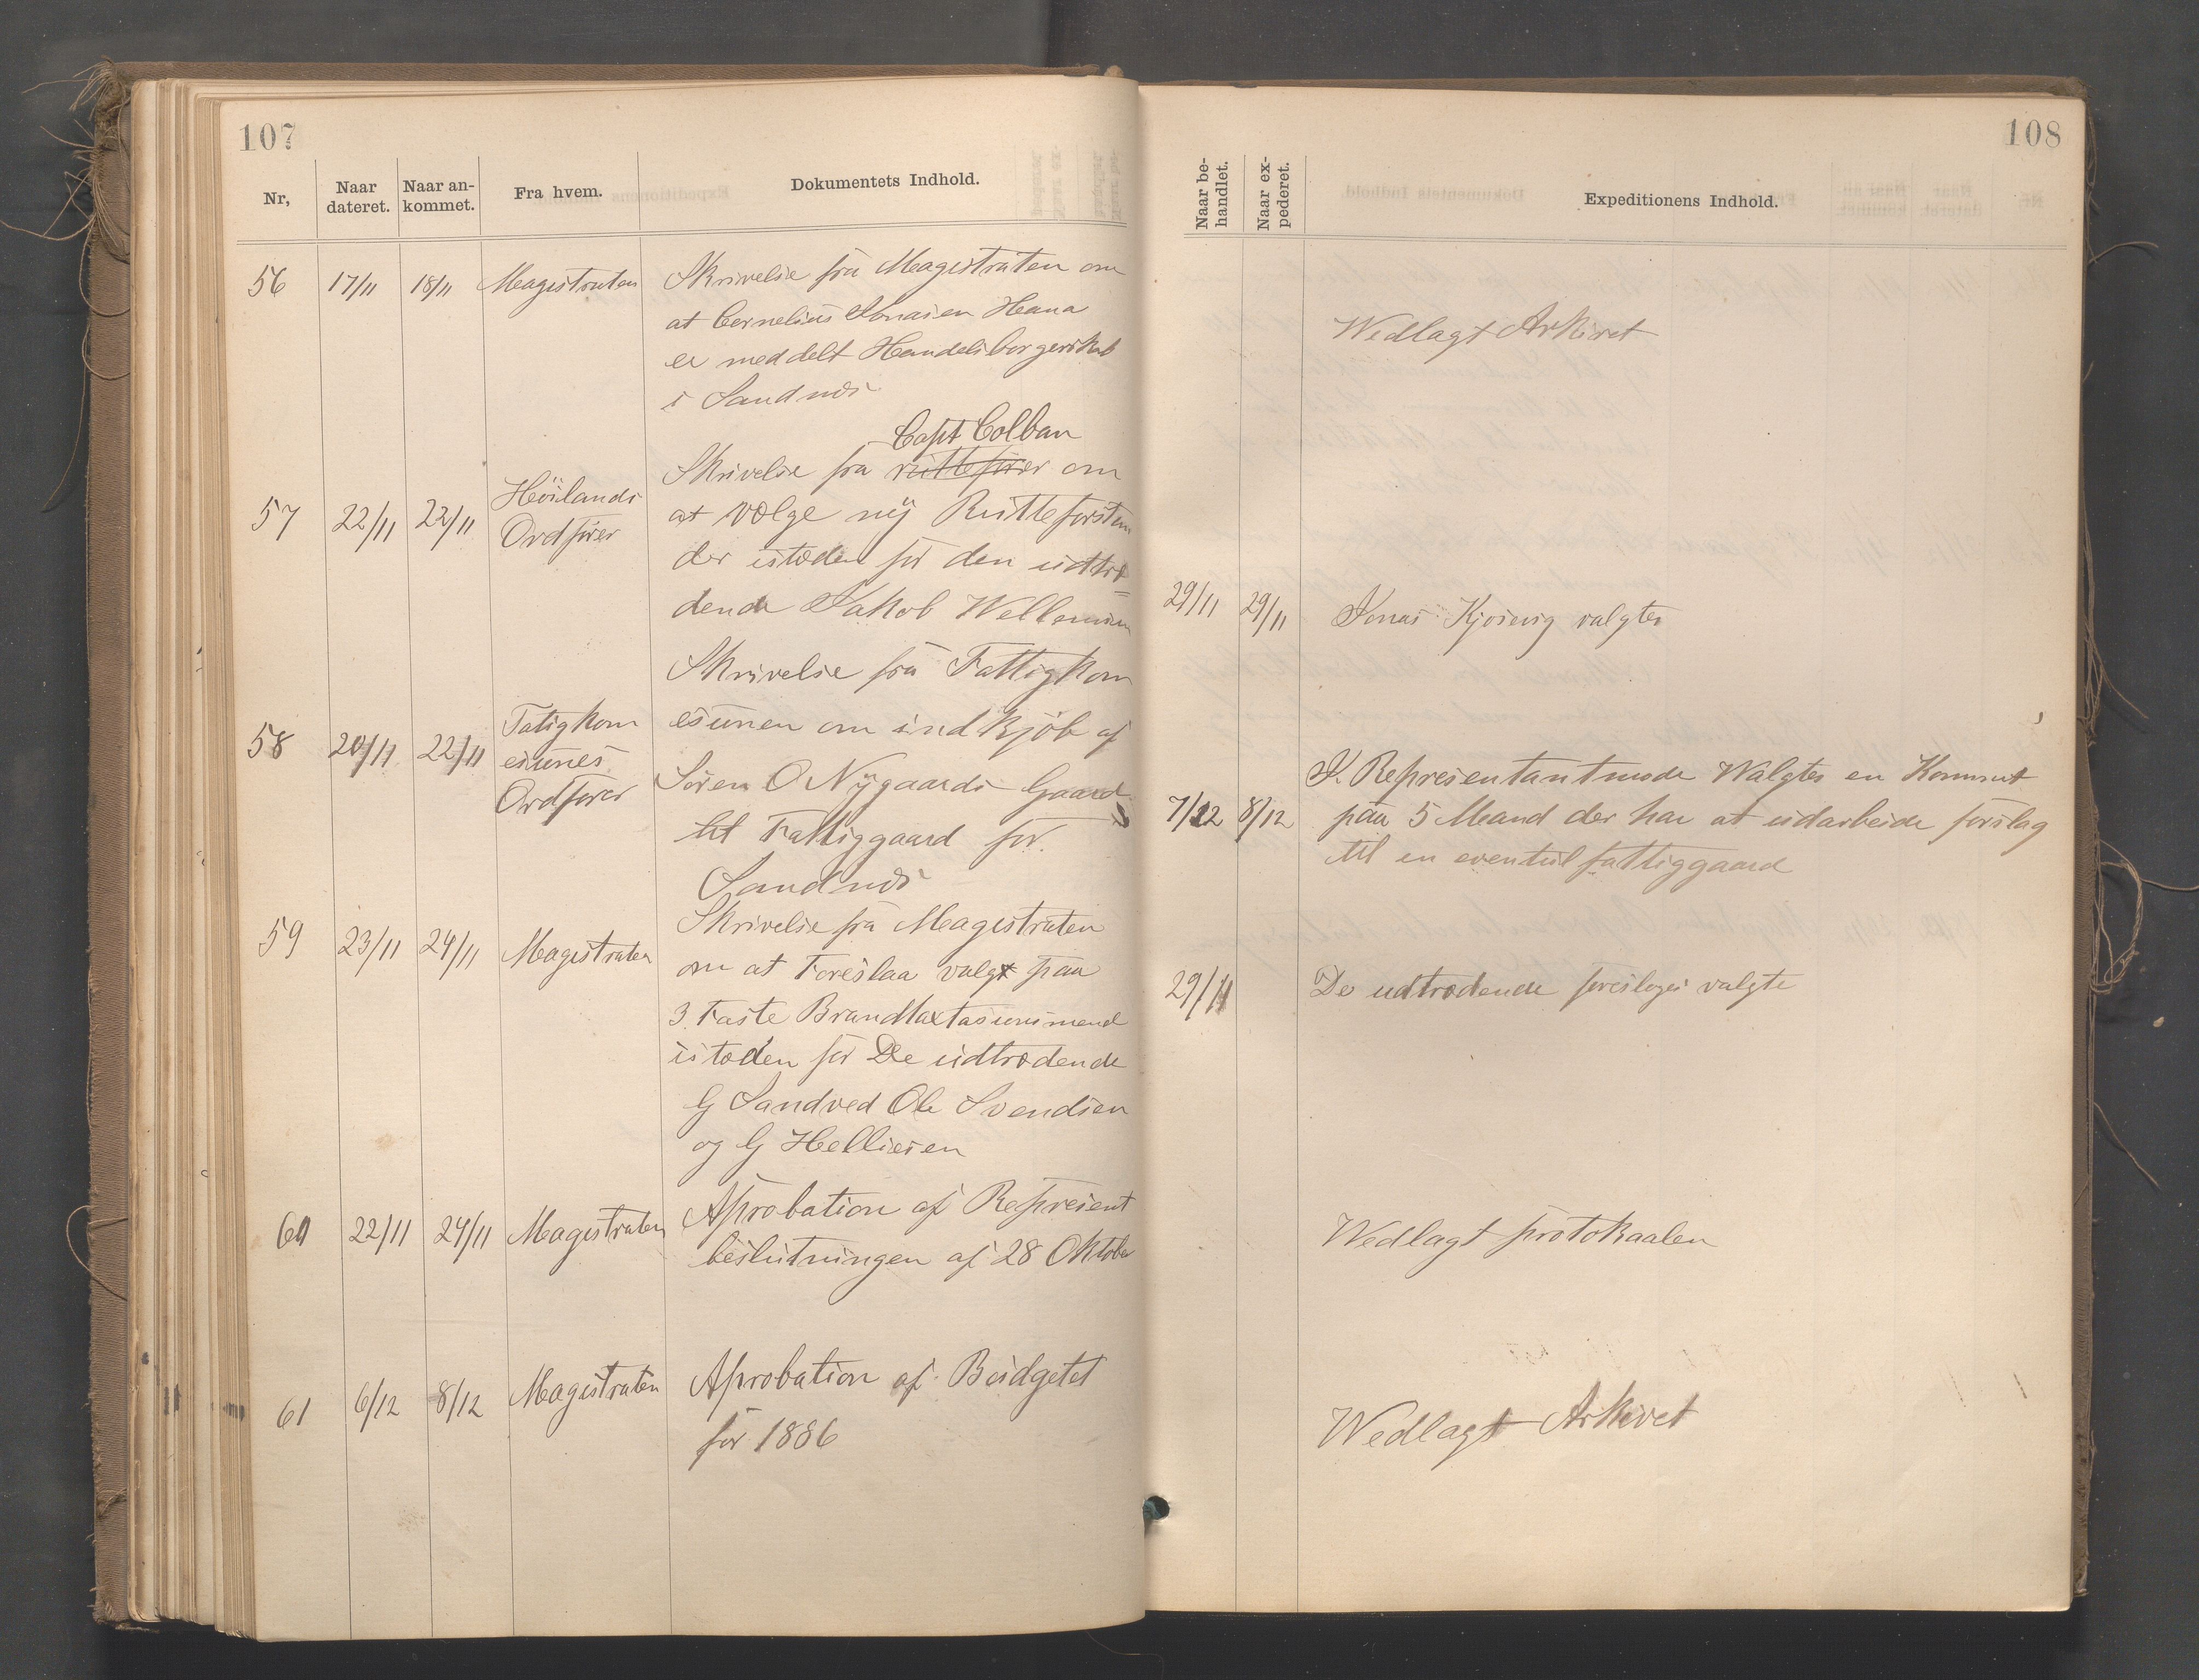 107
Nr,
Naar dateret.
Naar an-
kommet.
Fra hvem.
Dokumentets Indhold.
56 17/11 18/11 Magistraten
Skrivelse fra Magistraten om
at Cornelius Jonasen Hana
er meddelt Handelsborgerskab
i Sandnæs
57 22/11 22/11
Höilands
Ordförer
Capt Colban
Skrivelse fra rutteförer om
at vælge ny Rutteforstan
der istæden for den udtræ=
dende Jakob Wellemsen
58 20/11 22/11
Fatigkom
esunes
Ordförer
Skrivelse fra Fattigkom
esunen om indkjöb af
Sören O Nygaards Gaard
til Fattiggaard for
Sandnæs
59 23/11 24/11 Magistraten
Skrivelse fra Magistraten
om at Foreslaa valgt paa
3 Faste Brandtaxtasunsmænd
istæden for De udtrædende
G Sandved Ole Svendsen
og G Helliesen
60 22/11 24/11 Magistraten
Aprobation af Represent
beslutningen af 28 Oktober
61 6/12 8/12 Magistraten
Aprobation af Budgetet
for 1886
108
Naar be-
handlet.
Naar ex-
pederet.
Expeditionens Indhold.
Wedlagt Arkivet
29/11 29/11 Jonas Kjosavig valgtes
7/12 8/12
I Representantmøde Walgtes en Kommit
paa 5 Mand der har at udarbeide forslag
til en eventuel fattiggaard
29/11 De udtrædende foresloges valgte
Wedlagt protokaalen
Wedlagt Arkivet